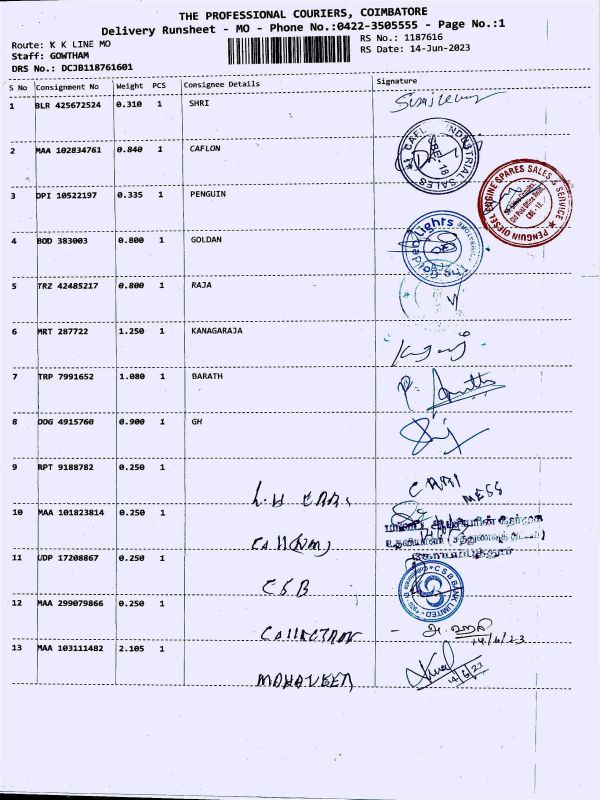 THE PROFESSIONAL COURIERS, COIMBATORE
Delivery Runsheet - MO - Phone No.:0422-3505555 - Page No.:1
Route: K K LINE MO
RS No.: 1187616
Staff: GOWTHAM
RS Date: 14-Jun-2023
DRS No.: DCJB118761601
S No Consignment No Weight PCS Consignee Details Signature
1 BLR 425672524 0.310 1 SHRI
2 MAA 102834761 0.840 1 CAFLON
INDUSTRIAL SALES
CBE. 18
3 DPI 10522197 0.335 1 PENGUIN
PENGUIN DIESEL ENGINE SPARES SALES & SERVICE
4 BOD 383003 0.800 1 GOLDAN
The Golden Lights
5 TRZ 42485217 0.800 1 RAJA
6 MRT 287722 1.250 1 KANAGARAJA
7 TRP 7991652 1.080 1 BARATH
8 DDG 4915760 0.900 1 GH
9 RPT 9188782 0.250 1
CARI MESS
10 MAA 101823814 0.250 1
11 UDP 17208867 0.250 1 CSB
CSB BANK LIMITED
12 MAA 299079866 0.250 1
14/6/23
13 MAA 103111482 2.105 1
14/6/23